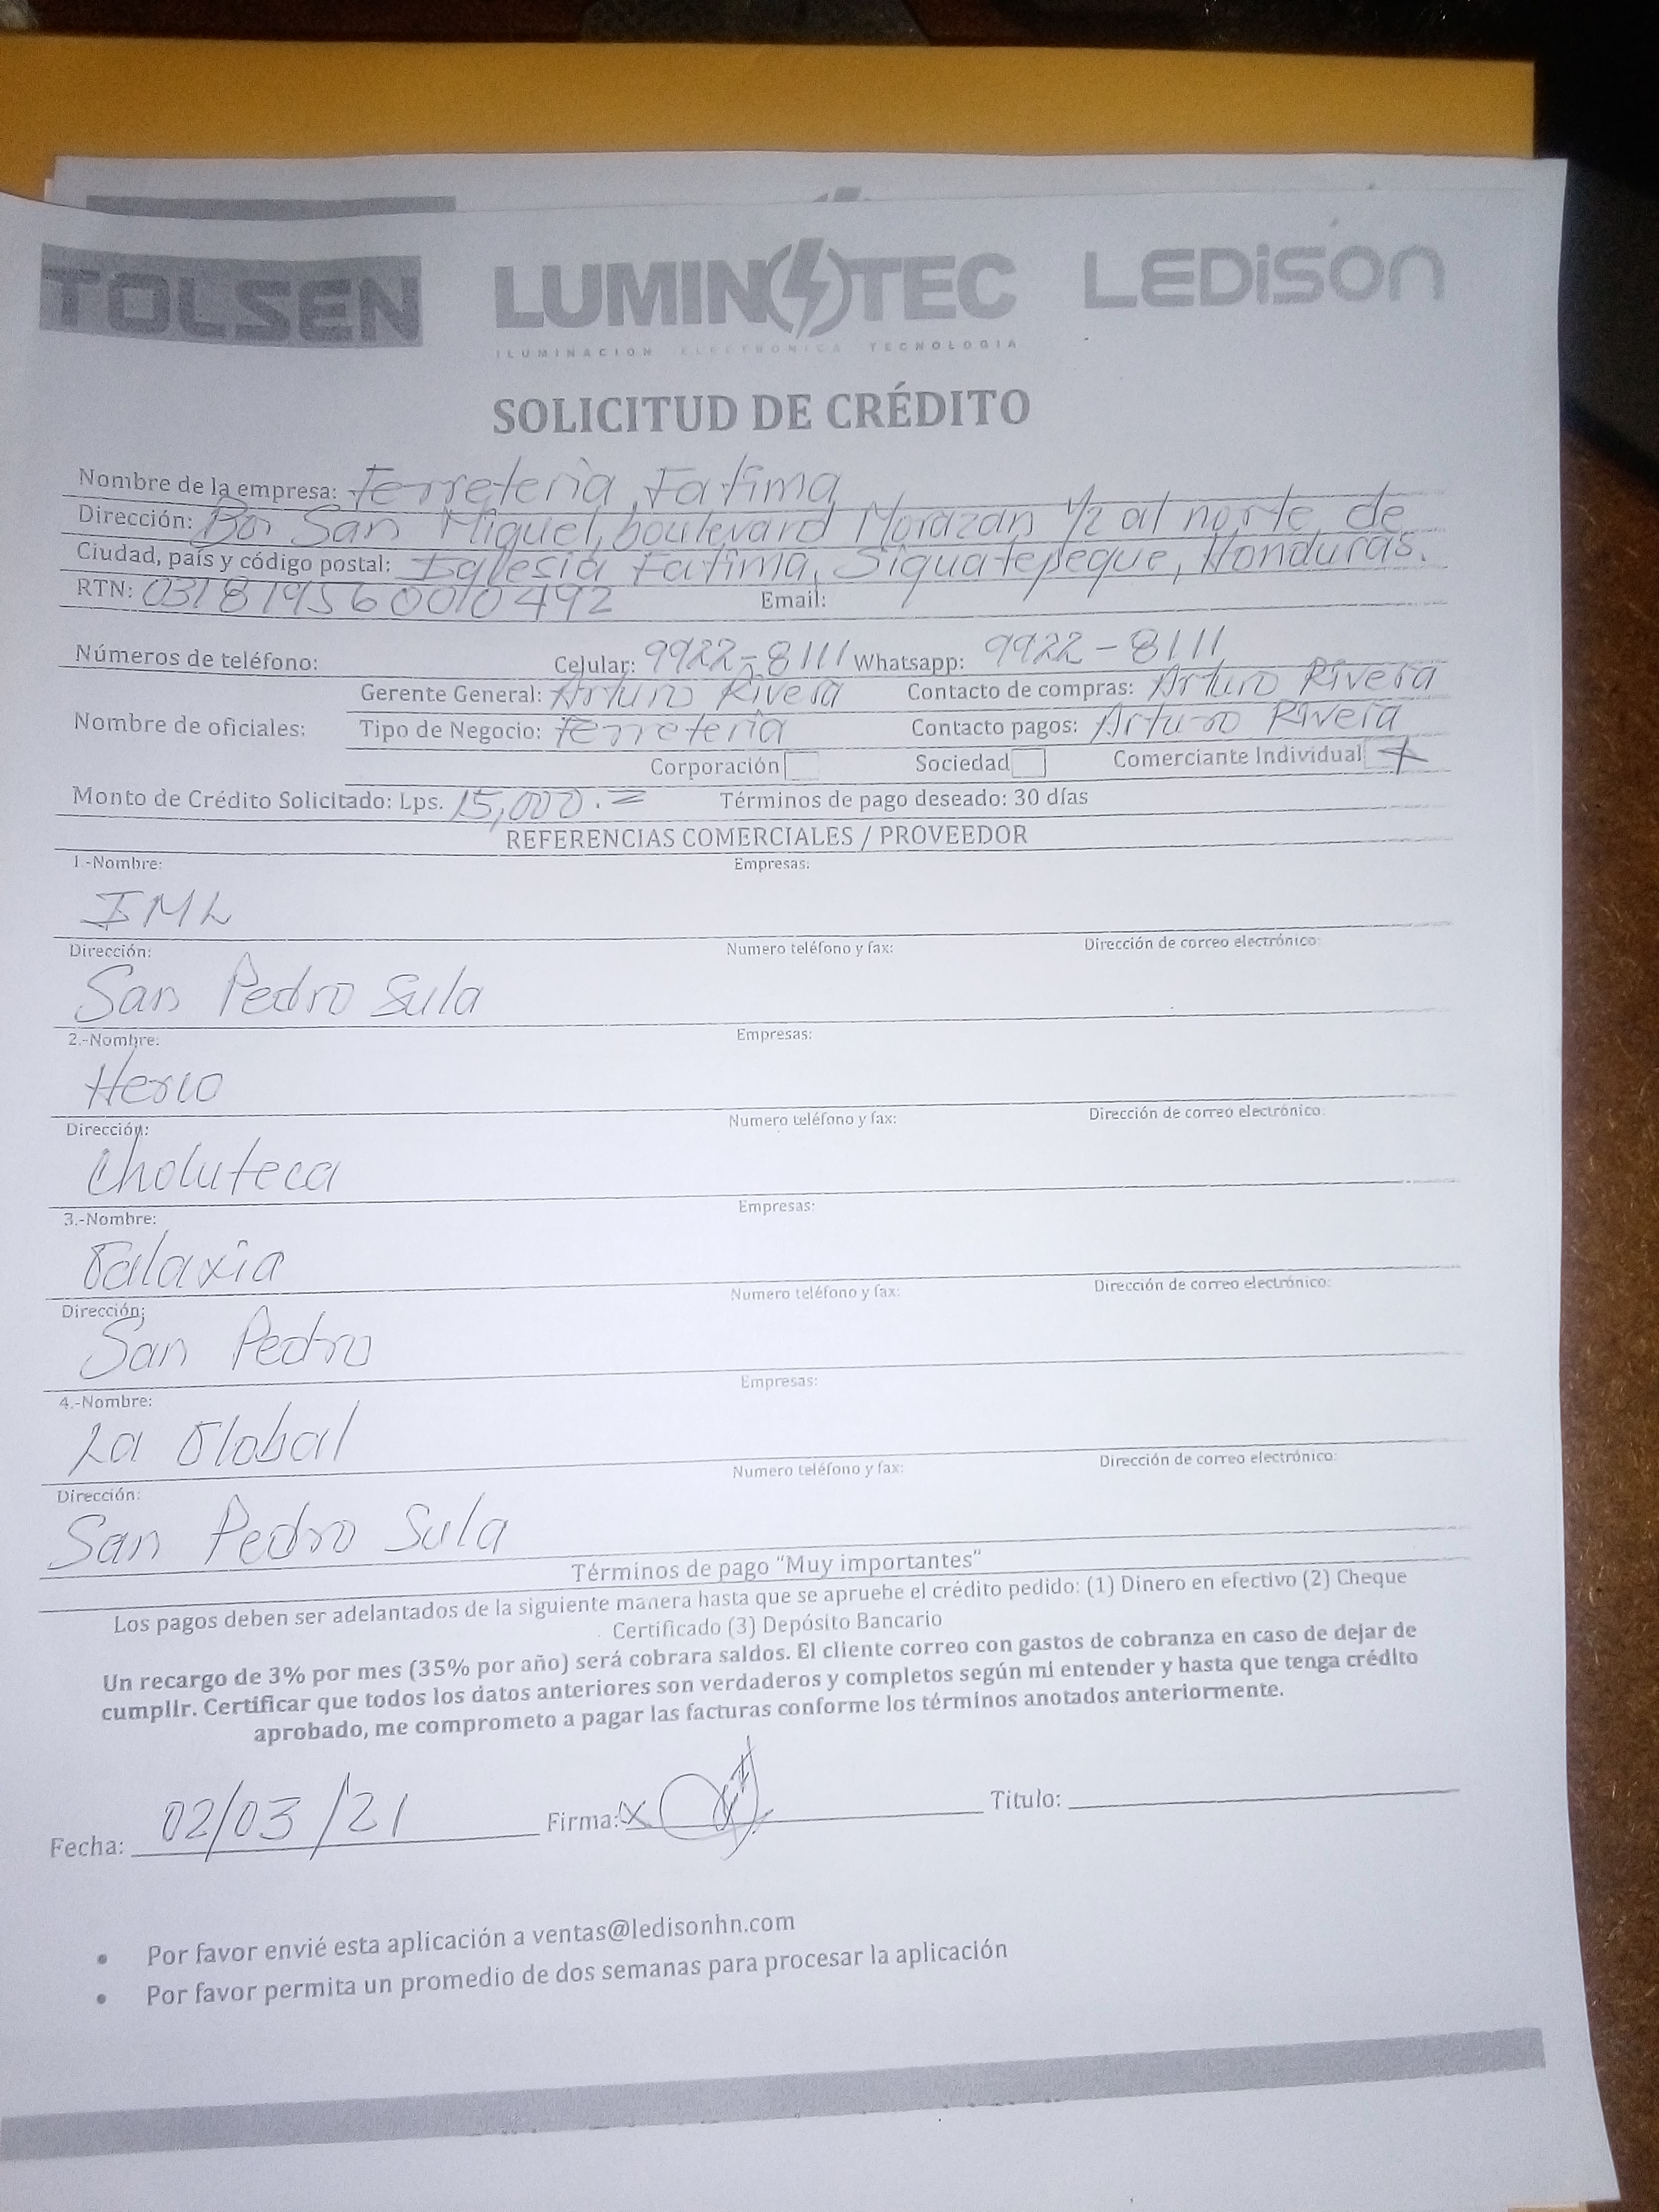 TOLSEN LUMINOTEC LEDISON
ILUMINACION ELECTRONICA TECNOLOGIA
SOLICITUD DE CRÉDITO
Nombre de la empresa: Ferreteria Fatima
Dirección: Bo. San Miguel, boulevard Morazan 1/2 al norte de
Ciudad, país y código postal: Iglesia Fatima, Siguatepeque, Honduras.
RTN: 031819560010492 Email:
Números de teléfono: Celular: 9922-8111 Whatsapp: 9922-8111
Gerente General: Arturo Rivera Contacto de compras: Arturo Rivera
Nombre de oficiales: Tipo de Negocio: Ferreteria Contacto pagos: Arturo Rivera
Corporación Sociedad Comerciante Individual X
Monto de Crédito Solicitado: Lps. 15,000.= Términos de pago deseado: 30 días
REFERENCIAS COMERCIALES / PROVEEDOR
1-Nombre: Empresas:
IML
Dirección: Numero teléfono y fax: Dirección de correo electrónico:
San Pedro Sula
2.-Nombre: Empresas:
Dirección: Numero teléfono y fax: Dirección de correo electrónico:
Choluteca
3.-Nombre: Empresas:
Galaxia
Dirección: Numero teléfono y fax: Dirección de correo electrónico:
San Pedro
4.-Nombre: Empresas:
La Global
Dirección: Numero teléfono y fax: Dirección de correo electrónico:
San Pedro Sula
Términos de pago "Muy importantes"
Los pagos deben ser adelantados de la siguiente manera hasta que se apruebe el crédito pedido: (1) Dinero en efectivo (2) Cheque
Certificado (3) Depósito Bancario
Un recargo de 3% por mes (35% por año) será cobrara saldos. El cliente correo con gastos de cobranza en caso de dejar de
cumplir. Certificar que todos los datos anteriores son verdaderos y completos según mi entender y hasta que tenga crédito
aprobado, me comprometo a pagar las facturas conforme los términos anotados anteriormente.
Fecha: 02/03/21 Firma: x Titulo:
• Por favor envié esta aplicación a ventas@ledisonhn.com
• Por favor permita un promedio de dos semanas para procesar la aplicación